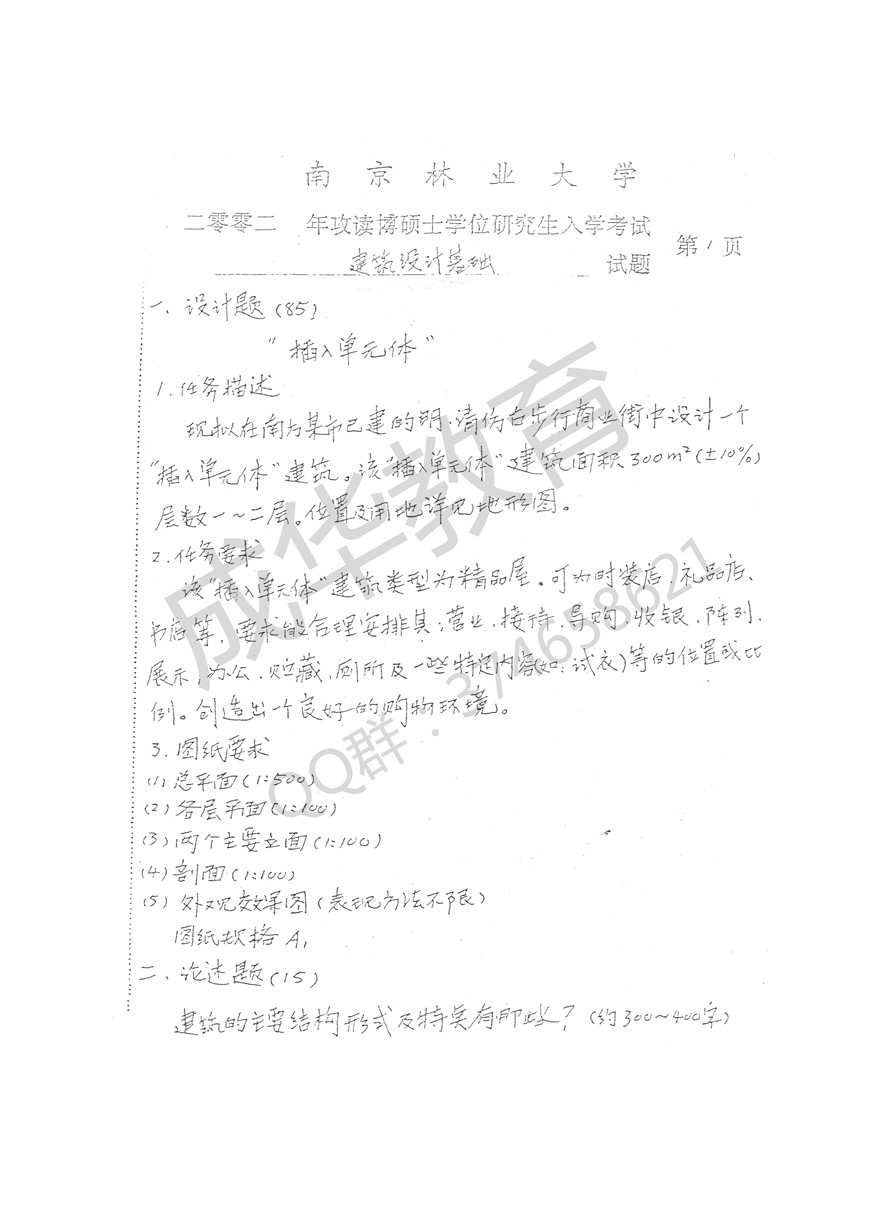 南京林业大学
二零零二 年攻读博硕士学位研究生入学考试
建筑设计基础 试题 第1页
一、设计题(85)
"插入单元体"
1.任务描述
现拟在南方某市已建的明、清仿古步行商业街中设计一个
"插入单元体"建筑。该"插入单元体"建筑面积300m²(±10%)
层数一~二层。位置及用地详见地形图。
2.任务要求
该"插入单元体"建筑类型为精品屋。可为时装店、礼品店、
书店等,要求能合理安排其:营业、接待、导购、收银、陈列、
展示、办公、贮藏、厕所及一些特定内容(如:试衣)等的位置或比
例。创造出一个良好的购物环境。
3.图纸要求
(1)总平面(1:500)
(2)各层平面(1:100)
(3)两个主要立面(1:100)
(4)剖面(1:100)
(5)外观效果图(表现方法不限)
图纸规格A1
二、论述题(15)
建筑的主要结构形式及特点有那些?(约300~400字)
成华教育
QQ群:374638621